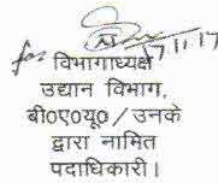 for
17.11.17
विभागाध्यक्ष
उद्यान विभाग,
बी०ए०यू० / उनके
द्वारा नामित
पदाधिकारी।